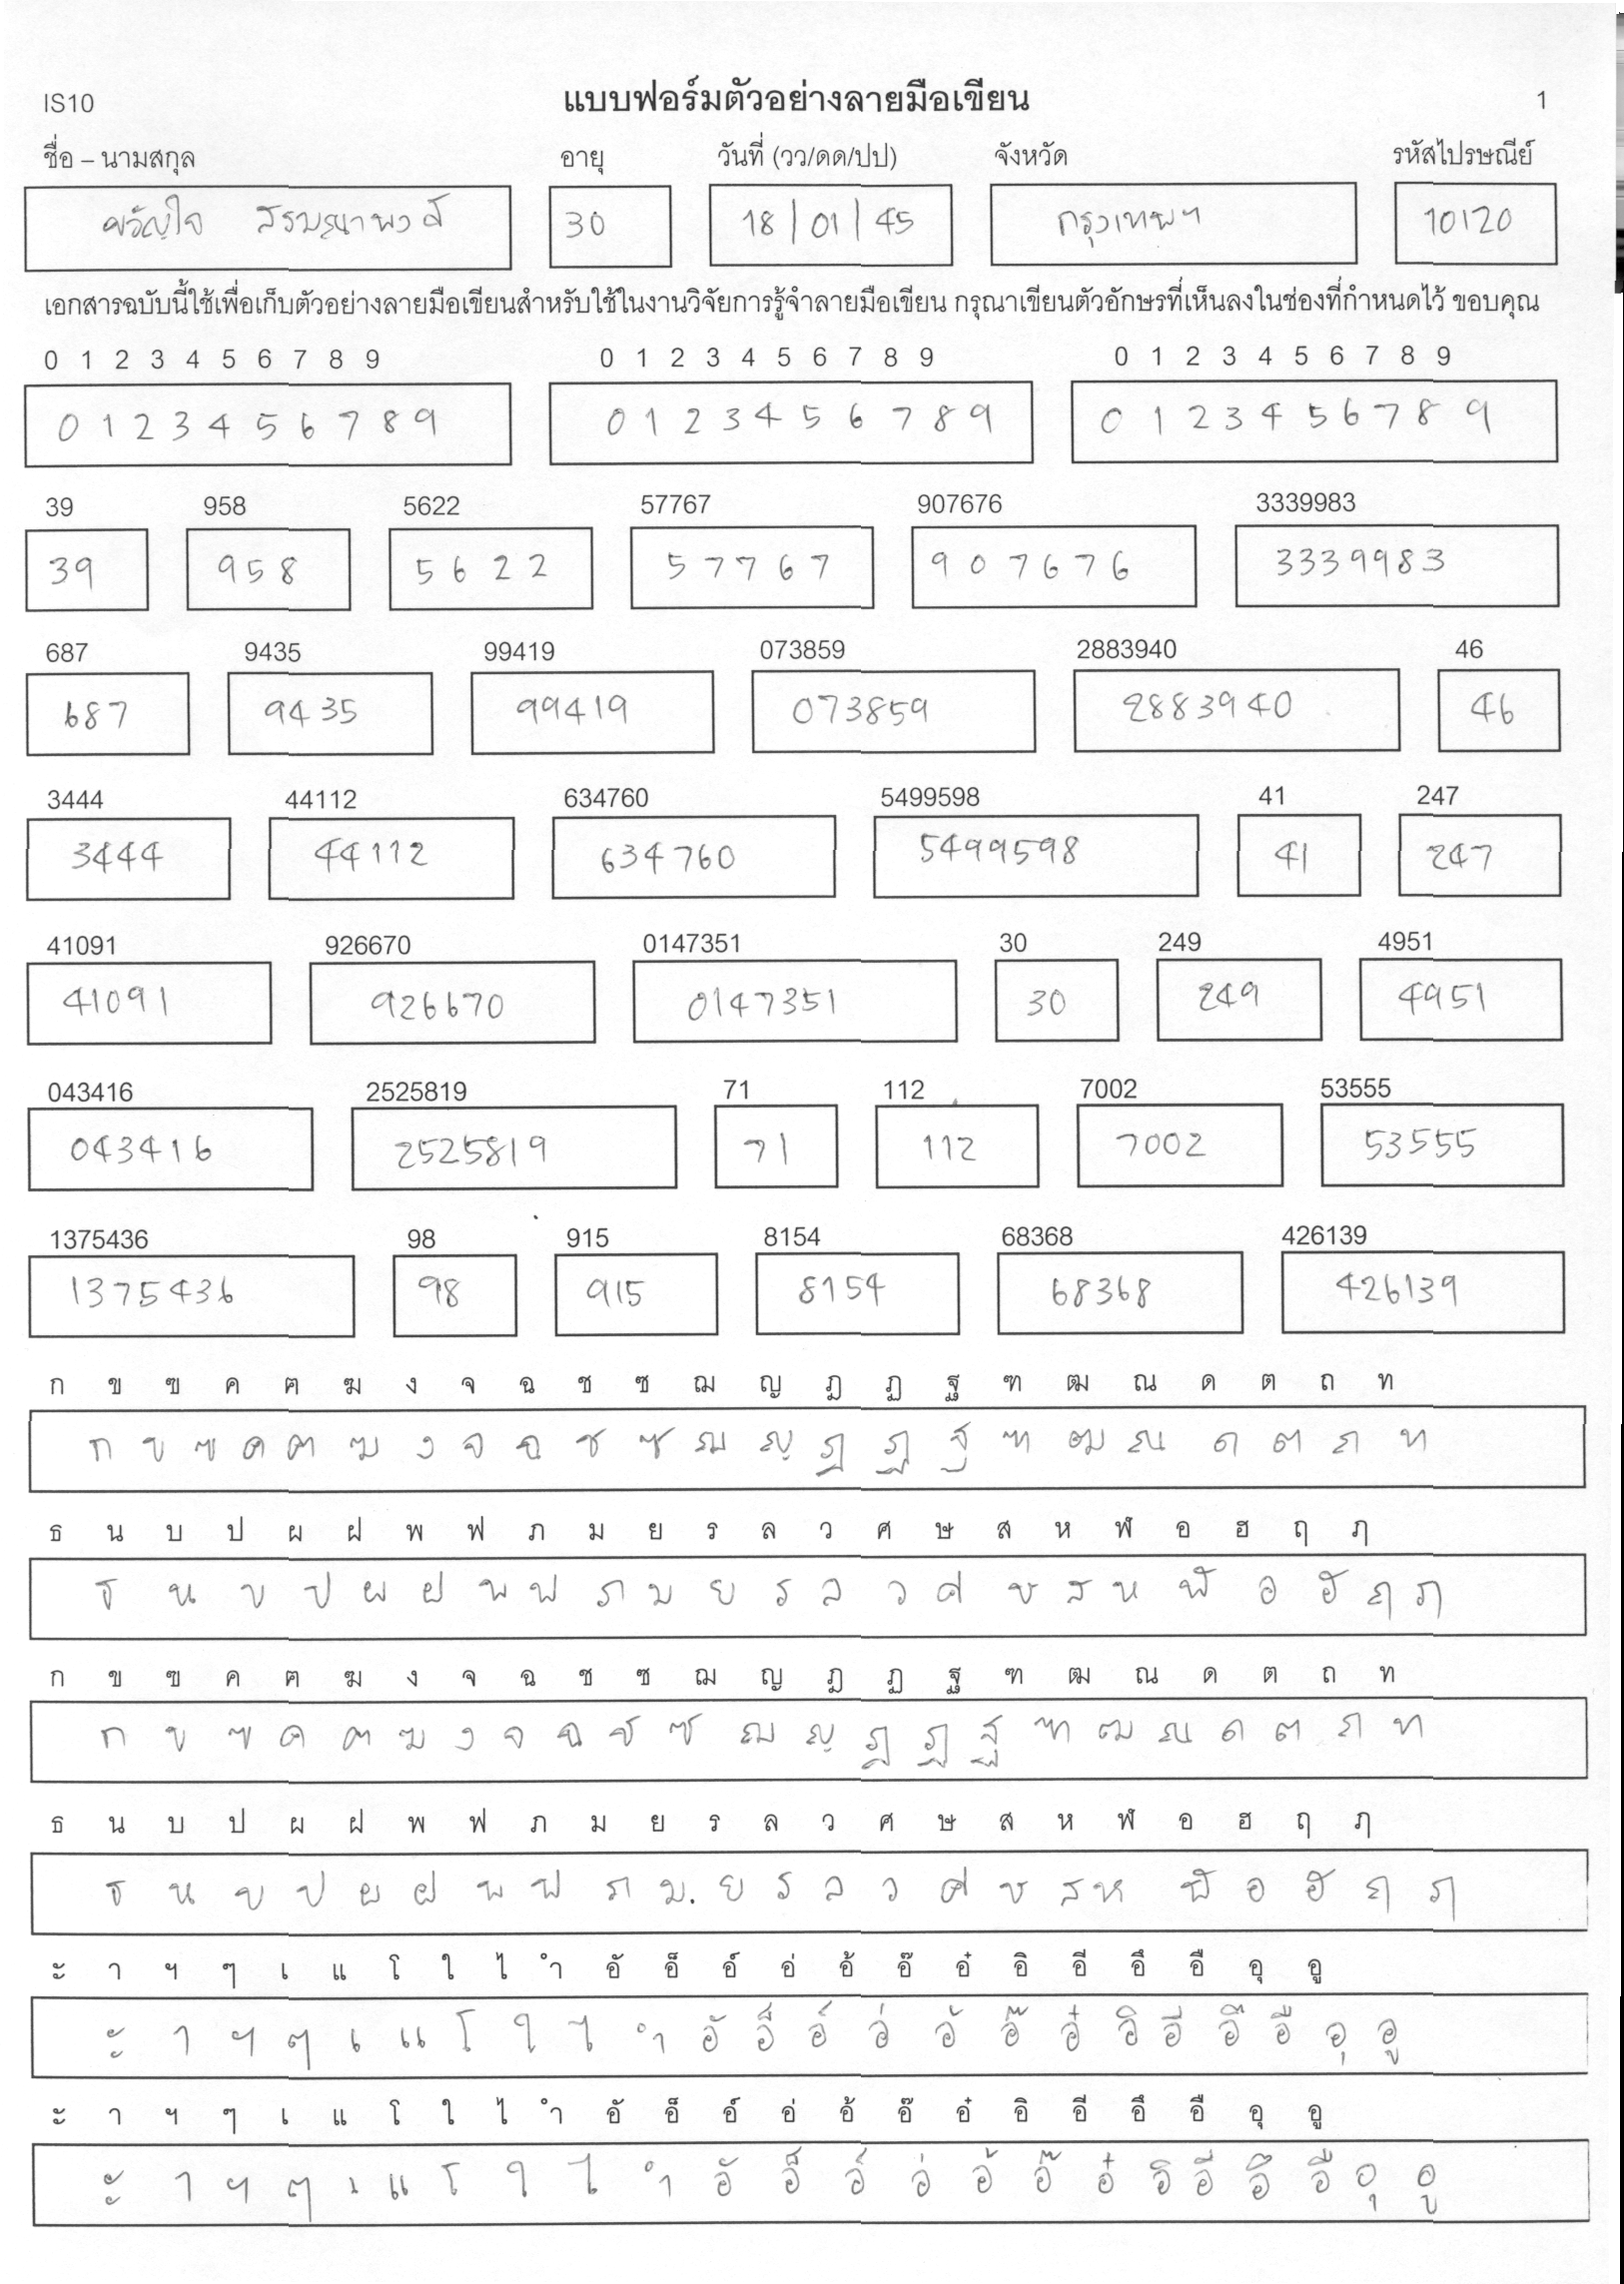 IS10 แบบฟอร์มตัวอย่างลายมือเขียน 1
ชื่อ – นามสกุล อายุ วันที่ (วว/ดด/ปป) จังหวัด รหัสไปรษณีย์
ขวัญใจ 30 18/01/45 กรุงเทพฯ 10120
เอกสารฉบับนี้ใช้เพื่อเก็บตัวอย่างลายมือเขียนสำหรับใช้ในงานวิจัยการรู้จำลายมือเขียน กรุณาเขียนตัวอักษรที่เห็นลงในช่องที่กำหนดไว้ ขอบคุณ
0 1 2 3 4 5 6 7 8 9 0 1 2 3 4 5 6 7 8 9 0 1 2 3 4 5 6 7 8 9
0 1 2 3 4 5 6 7 8 9 0 1 2 3 4 5 6 7 8 9 0 1 2 3 4 5 6 7 8 9
39 958 5622 57767 907676 3339983
39 958 5622 57767 907676 3339983
687 9435 99419 073859 2883940 46
687 9435 99419 073859 2883940 46
3444 44112 634760 5499598 41 247
3444 44112 634760 5499598 41 247
41091 926670 0147351 30 249 4951
41091 926670 0147351 30 249 4951
043416 2525819 71 112 7002 53555
043416 2525819 71 112 7002 53555
1375436 98 915 8154 68368 426139
1375436 98 915 8154 68368 426139
ก ข ฃ ค ฅ ฆ ง จ ฉ ช ซ ฌ ญ ฎ ฏ ฐ ฑ ฒ ณ ด ต ถ ท
ก ข ฃ ค ฅ ฆ ง จ ฉ ช ซ ฌ ญ ฎ ฏ ฐ ฑ ฒ ณ ด ต ถ ท
ธ น บ ป ผ ฝ พ ฟ ภ ม ย ร ล ว ศ ษ ส ห ฬ อ ฮ ฤ ฦ
ธ น บ ป ผ ฝ พ ฟ ภ ม ย ร ล ว ศ ษ ส ห ฬ อ ฮ ฤ ฦ
ก ข ฃ ค ฅ ฆ ง จ ฉ ช ซ ฌ ญ ฎ ฏ ฐ ฑ ฒ ณ ด ต ถ ท
ก ข ฃ ค ฅ ฆ ง จ ฉ ช ซ ฌ ญ ฎ ฏ ฐ ฑ ฒ ณ ด ต ถ ท
ธ น บ ป ผ ฝ พ ฟ ภ ม ย ร ล ว ศ ษ ส ห ฬ อ ฮ ฤ ฦ
ธ น บ ป ผ ฝ พ ฟ ภ ม. ย ร ล ว ศ ษ ส ห ฬ อ ฮ ฤ ฦ
ะ า ฯ ๆ เ แ โ ใ ไ ำ อั อ็ อ์ อ่ อ้ อ๊ อ๋ อิ อี อึ อื อุ อู
ะ า ฯ ๆ เ แ โ ใ ไ ำ อั อ็ อ์ อ่ อ้ อ๊ อ๋ อิ อี อึ อื อุ อู
ะ า ฯ ๆ เ แ โ ใ ไ ำ อั อ็ อ์ อ่ อ้ อ๊ อ๋ อิ อี อึ อื อุ อู
ะ า ฯ ๆ เ แ โ ใ ไ ำ อั อ็ อ์ อ่ อ้ อ๊ อ๋ อิ อี อึ อื อุ อู